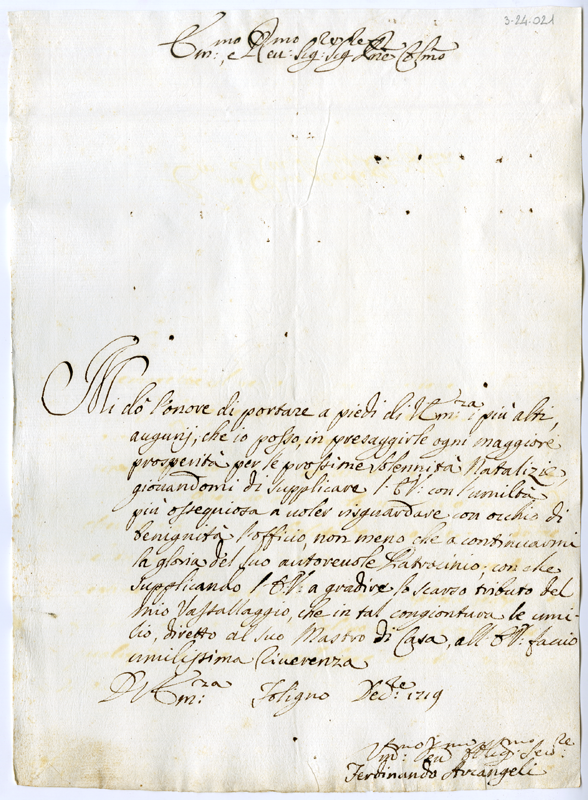 3-24-021
Em:mo e Reu:mo Sig: Sig: Pne Colmo
Mi dò l'onore di portare a piedi di V Em:za i più alti
augurij, che io posso, in presaggirle ogni maggiore
prosperità per le prossime solennità Natalizie,
giouandomi di supplicare l' E V: con l'umiltà
più ossequiosa a uoler risguardare con occhio di
benignità l'officio, non meno che a continuarmi
la gloria del suo autoreuole Patrocinio; con che
supplicando l' E V: a gradire lo scarso tributo del
mio Vassallaggio, che in tal congiontura le umi-
lio, diretto al suo Mastro di Casa, all' E V: faccio
umilissima riuerenza
D V Em:za Foligno Dec:re 1719
Um:mo Deu:mo Oblig:mo Seru:re
Ferdinando Arcangeli